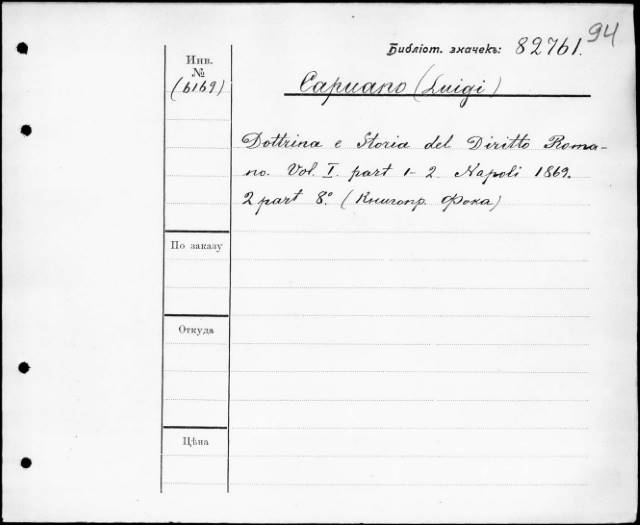 94
Библіот. значекъ: 82761.
Инв.
№
(6169)
Capuano (Luigi)
Dottrina e Storia del Diritto Roma-
no. Vol. I. part 1-2 Napoli 1869.
2 part 8.° (Книгопр. Фока)
По заказу
Откуда
Цѣна